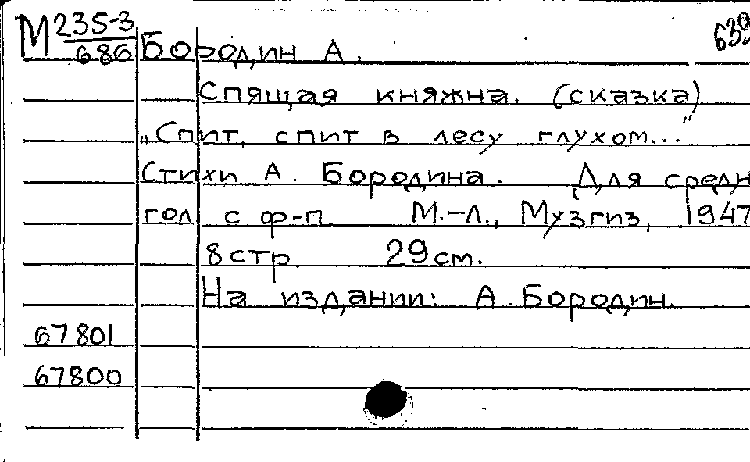 М 235-3 639
686 Бородин А.
Спящая княжна. (сказка)
„Спит, спит в лесу глухом..."
Стихи А. Бородина. Для средн
гол с ф-п М.-Л., Музгиз, 1947
8 стр 29 см.
На издании: А. Бородин.
67801
67800